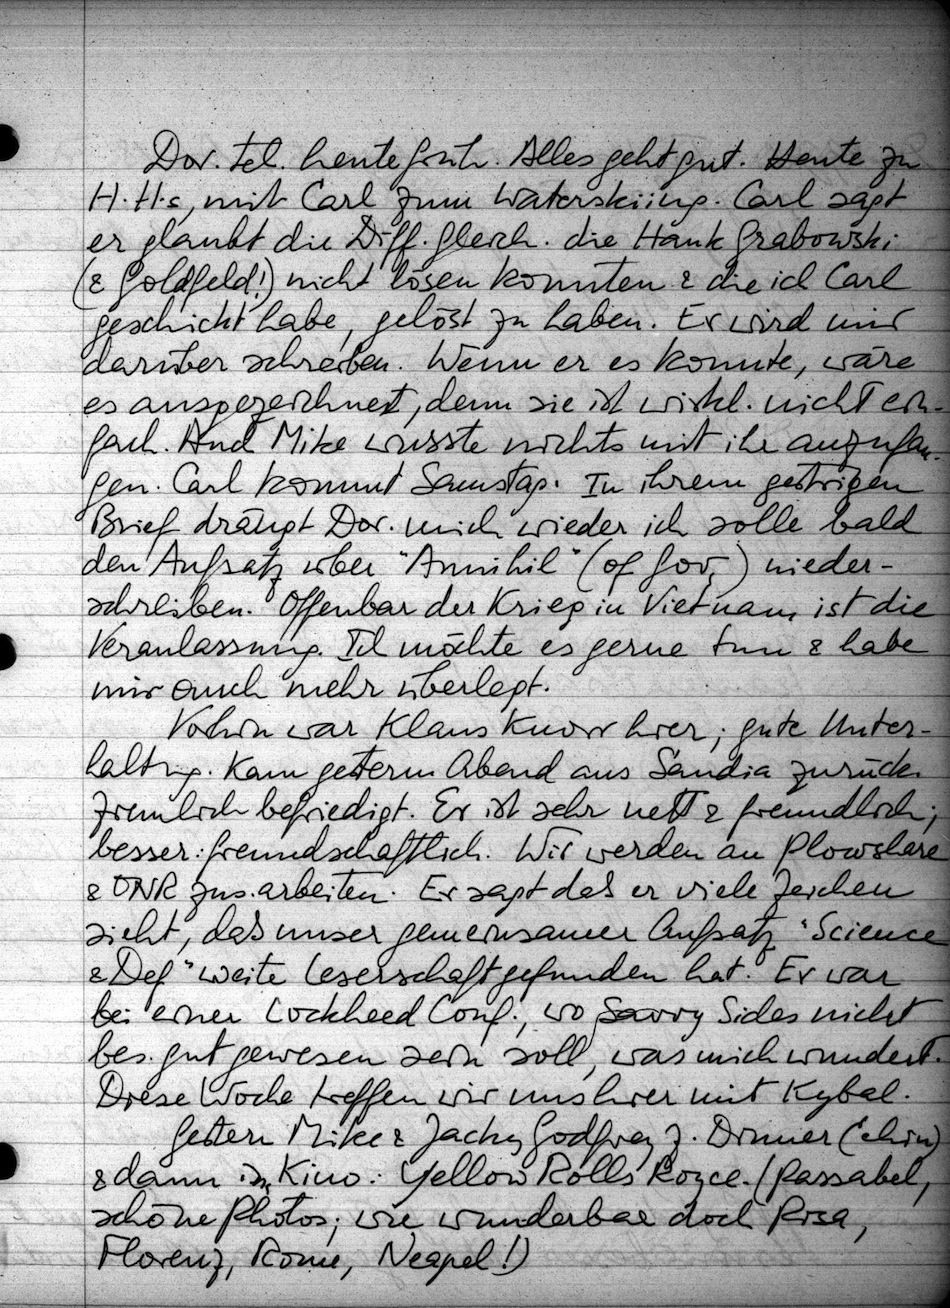 Dor. tel. heute früh. Alles geht gut. Heute zu
H.H.s, mit Carl zum Waterskiing. Carl sagt
er glaubt die Diff. gleich. die Hank Grabowski
(& Goldfeld!) nicht lösen konnten & die ich Carl
geschickt habe, gelöst zu haben. Er wird mir
darüber schreiben. Wenn er es konnte, wäre
es ausgezeichnet, denn sie ist wirkl. nicht ein-
fach. And Mike wusste nichts mit ihr anzufan-
gen. Carl kommt Samstag. In ihrem gestrigen
Brief drängt Dor. mich wieder ich solle bald
den Aufsatz über "Annihil" (of Gov.) nieder-
schreiben. Offenbar der Krieg in Vietnam ist die
Veranlassung. Ich möchte es gerne tun & habe
mir auch mehr überlegt.
Vorhin war Klaus Knorr hier; gute Unter-
haltung. Kam gestern Abend aus Sandia zurück.
Ziemlich befriedigt. Er ist sehr nett & freundlich;
besser: freundschaftlich. Wir werden an Plowshare
& ONR zus. arbeiten. Er sagt daß er viele Zeichen
sieht, daß unser gemeinsamer Aufsatz "Science
& Def" weite Leserschaft gefunden hat. Er war
bei einer Lockheed Conf., wo Sides nicht
bes. gut gewesen sein soll, was mich wundert.
Diese Woche treffen wir uns hier mit Kybal.
Gestern Mike & Jacky Godfrey z. Dinner
& dann in Kino: Yellow Rolls Royce. (Passabel,
schöne Photos; wie wunderbar doch Pisa,
Florenz, Rome, Neapel!)